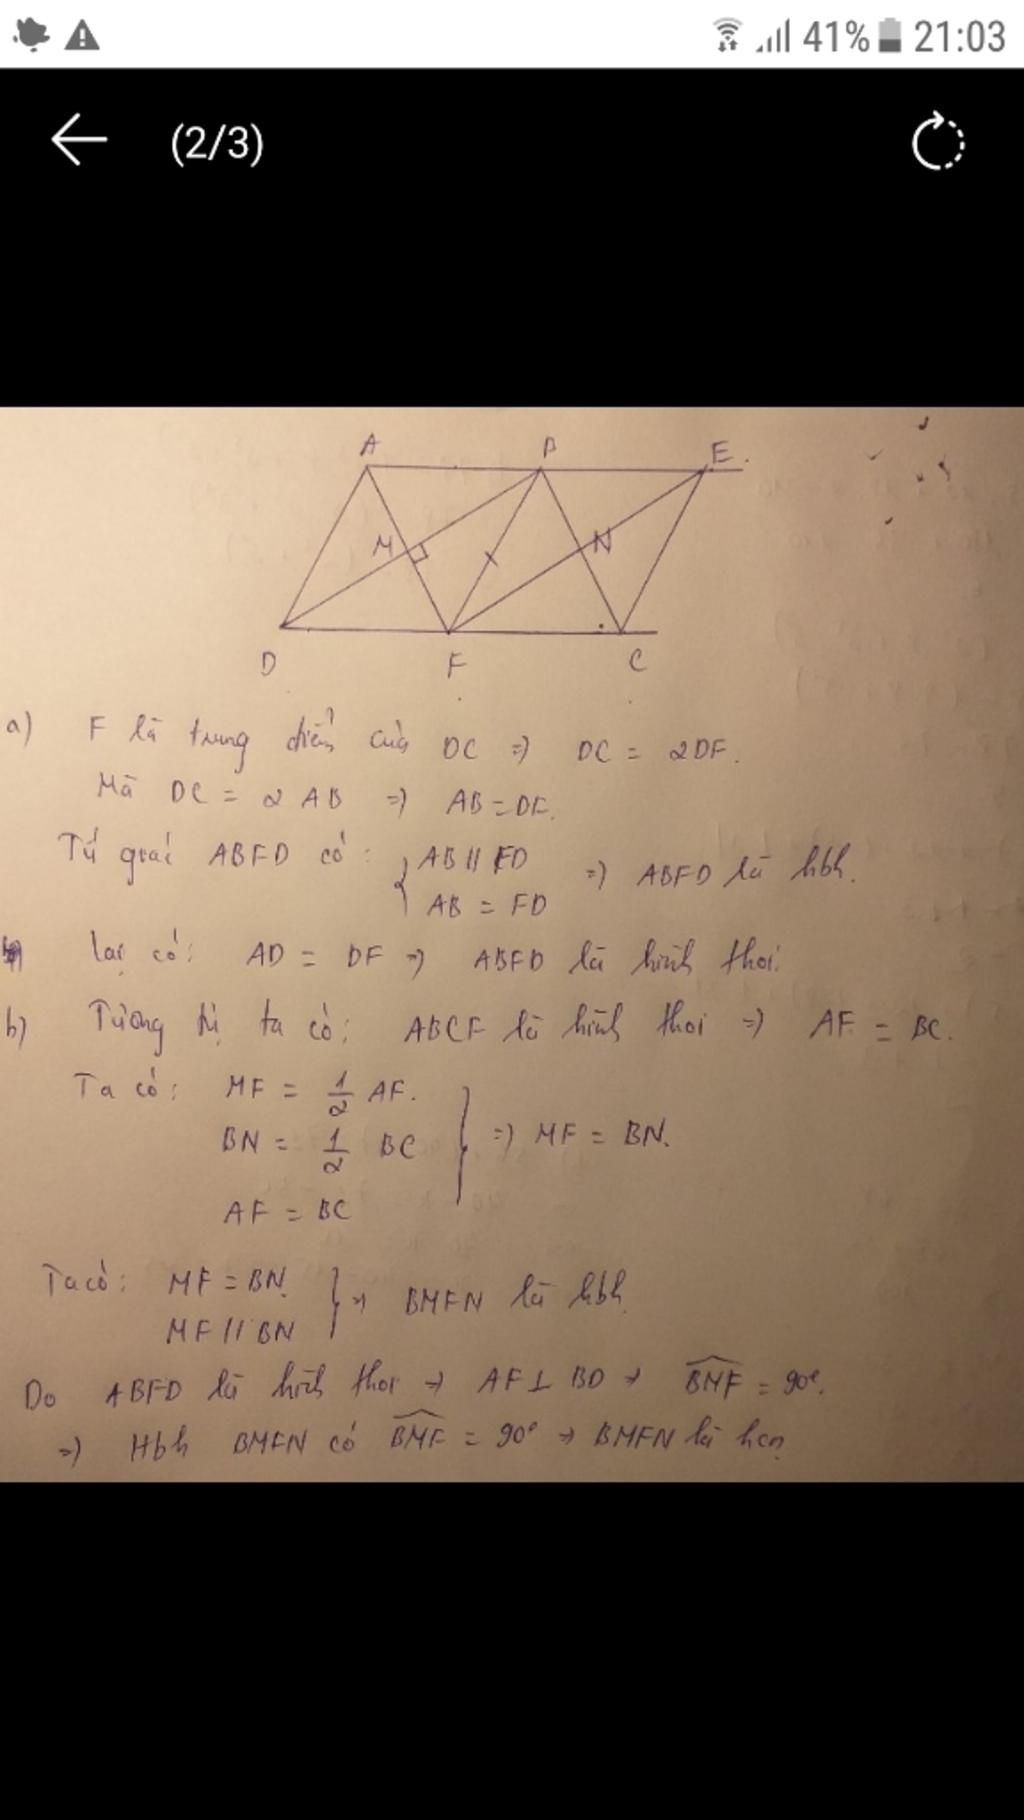 41% 21:03
(2/3)
A B E.
M N
D F C
a) F là trung điểm của DC => DC = 2DF.
Mà DC = 2AB => AB = DF.
Tứ giác ABFD có: { AB // FD => ABFD là hbh.
AB = FD
Lại có: AD = DF => ABFD là hình thoi.
b) Tương tự ta có: ABCF là hình thoi => AF = BC.
Ta có: MF = 1/2 AF.
BN = 1/2 BC } => MF = BN.
AF = BC
Ta có: MF = BN. } => BMFN là hbh.
MF // BN
Do ABFD là hình thoi => AF ⊥ BD => BMF = 90°.
=> Hbh BMFN có BMF = 90° => BMFN là hcn